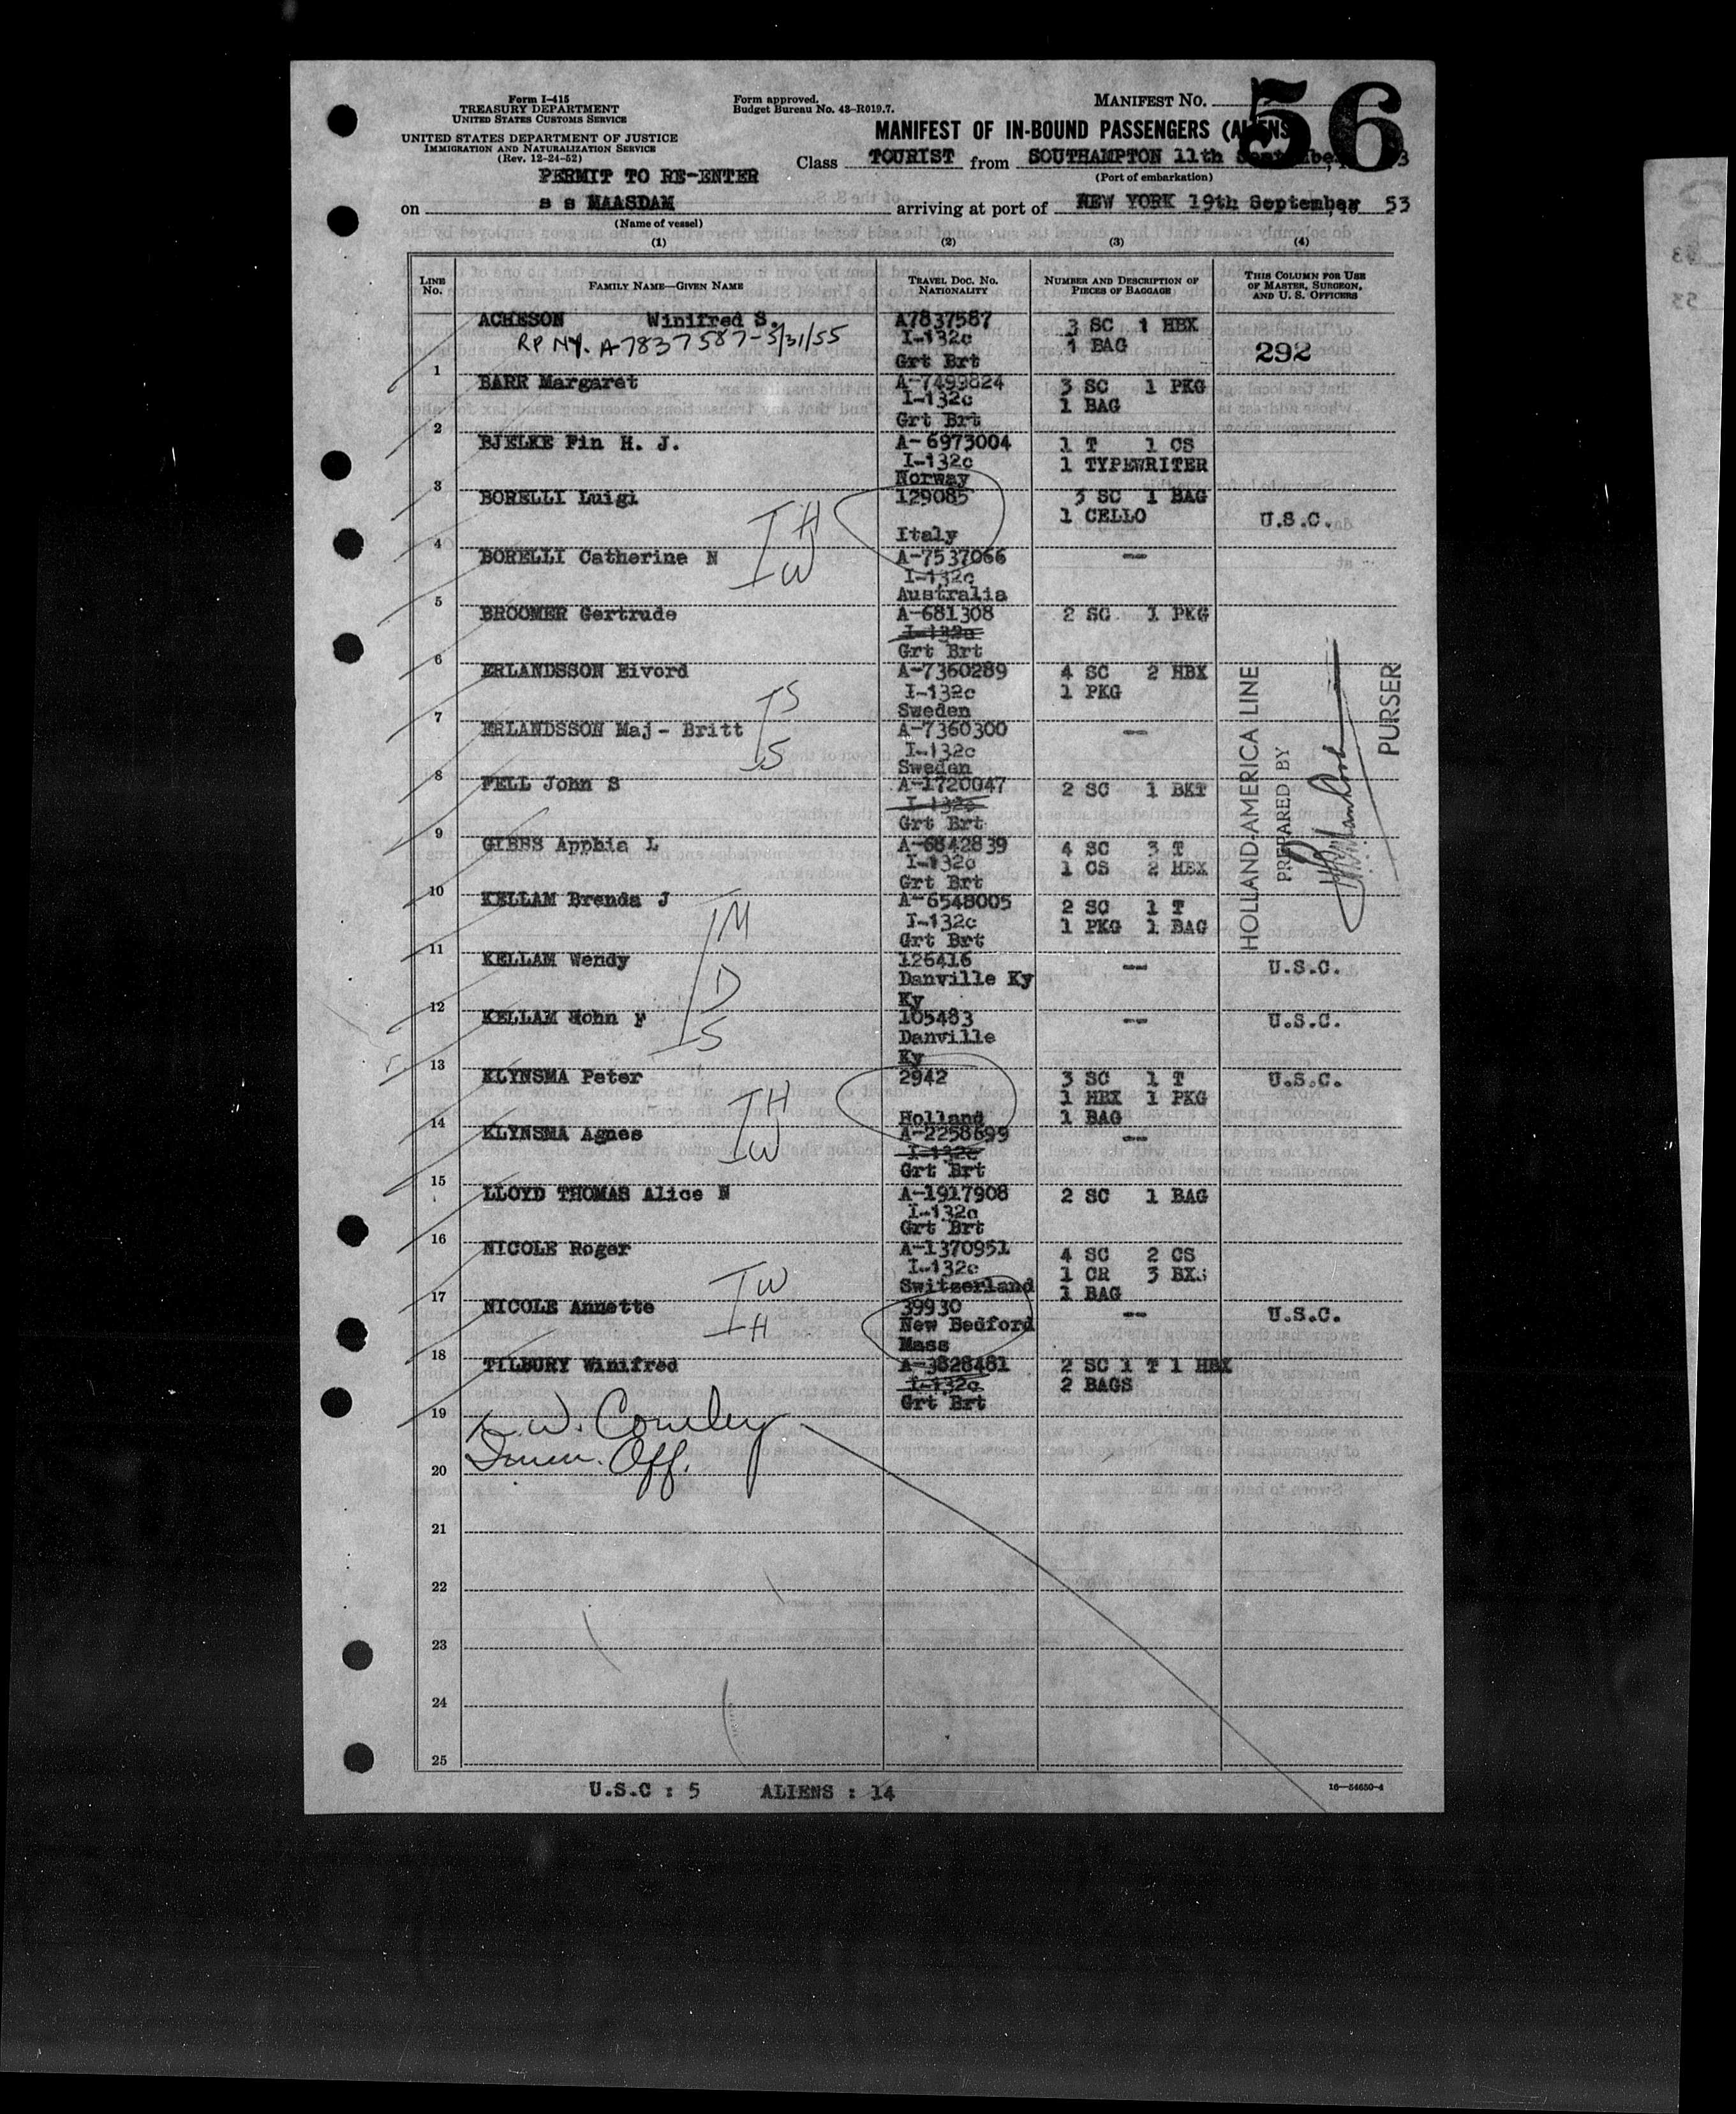 Form I-415
TREASURY DEPARTMENT
UNITED STATES CUSTOMS SERVICE
UNITED STATES DEPARTMENT OF JUSTICE
IMMIGRATION AND NATURALIZATION SERVICE
(Rev. 12-24-52)
PERMIT TO RE-ENTER
Form approved.
Budget Bureau No. 43-R019.7.
MANIFEST NO. 56
MANIFEST OF IN-BOUND PASSENGERS (ALIENS
Class TOURIST from SOUTHAMPTON 11th September, 3
(Port of embarkation)
on s s MAASDAM arriving at port of NEW YORK 19th September, 53
(Name of vessel)
(1) (2) (3) (4)
LINE NO. FAMILY NAME—GIVEN NAME TRAVEL DOC. NO. NATIONALITY NUMBER AND DESCRIPTION OF PIECES OF BAGGAGE THIS COLUMN FOR USE OF MASTER, SURGEON, AND U. S. OFFICERS
ACHESON Winifred S. A7837587 3 SC 1 HBX
RP NY. A-7837587-5/31/55 I-132c 1 BAG 292
1 Grt Brt
BARR Margaret A-7499824 3 SC 1 PKG
I-132c 1 BAG
2 Grt Brt
BJELKE Fin H. J. A-6973004 1 T 1 CS
I-132c 1 TYPEWRITER
3 Norway
BORELLI Luigi 129085 3 SC 1 BAG
H 1 CELLO U.S.C.
4 Italy
BORELLI Catherine N A-7537066 --
W I-132c
5 Australia
BROOMER Gertrude A-681308 2 SC 1 PKG
I-132c
6 Grt Brt
ERLANDSSON Eivord A-7360289 4 SC 2 HBX
S I-132c 1 PKG
7 Sweden
ERLANDSSON Maj- Britt A-7360300 --
S I-132c
8 Sweden
FELL John S A-1720047 2 SC 1 BKT
I-132c
9 Grt Brt
GIBBS Apphia L A-6842839 4 SC 3 T
I-132c 1 CS 2 HBX
10 Grt Brt
KELLAM Brenda J A-6548005 2 SC 1 T
M I-132c 1 PKG 1 BAG
11 Grt Brt
KELLAM Wendy 126416 -- U.S.C.
D Danville Ky
12 Ky
KELLAM John F 105483 -- U.S.C.
S Danville
13 Ky
KLYNSMA Peter 2942 3 SC 1 T U.S.C.
H 1 HBX 1 PKG
14 Holland 1 BAG
KLYNSMA Agnes A-2258699 --
W I-132c
15 Grt Brt
LLOYD THOMAS Alice N A-1917908 2 SC 1 BAG
I-132c
16 Grt Brt
NICOLE Roger A-1370951 4 SC 2 CS
W I-132c 1 CR 3 BXS
17 Switzerland 1 BAG
NICOLE Annette 39930 -- U.S.C.
H New Bedford
18 Mass
TILBURY Winifred A-3828481 2 SC 1 T 1 HBX
I-132c 2 BAGS
19 Grt Brt
W. Conley
20 Imm. Off.
21
22
23
24
25
HOLLAND-AMERICA LINE
PREPARED BY
PURSER
U.S.C : 5 ALIENS : 14
16—54650-4